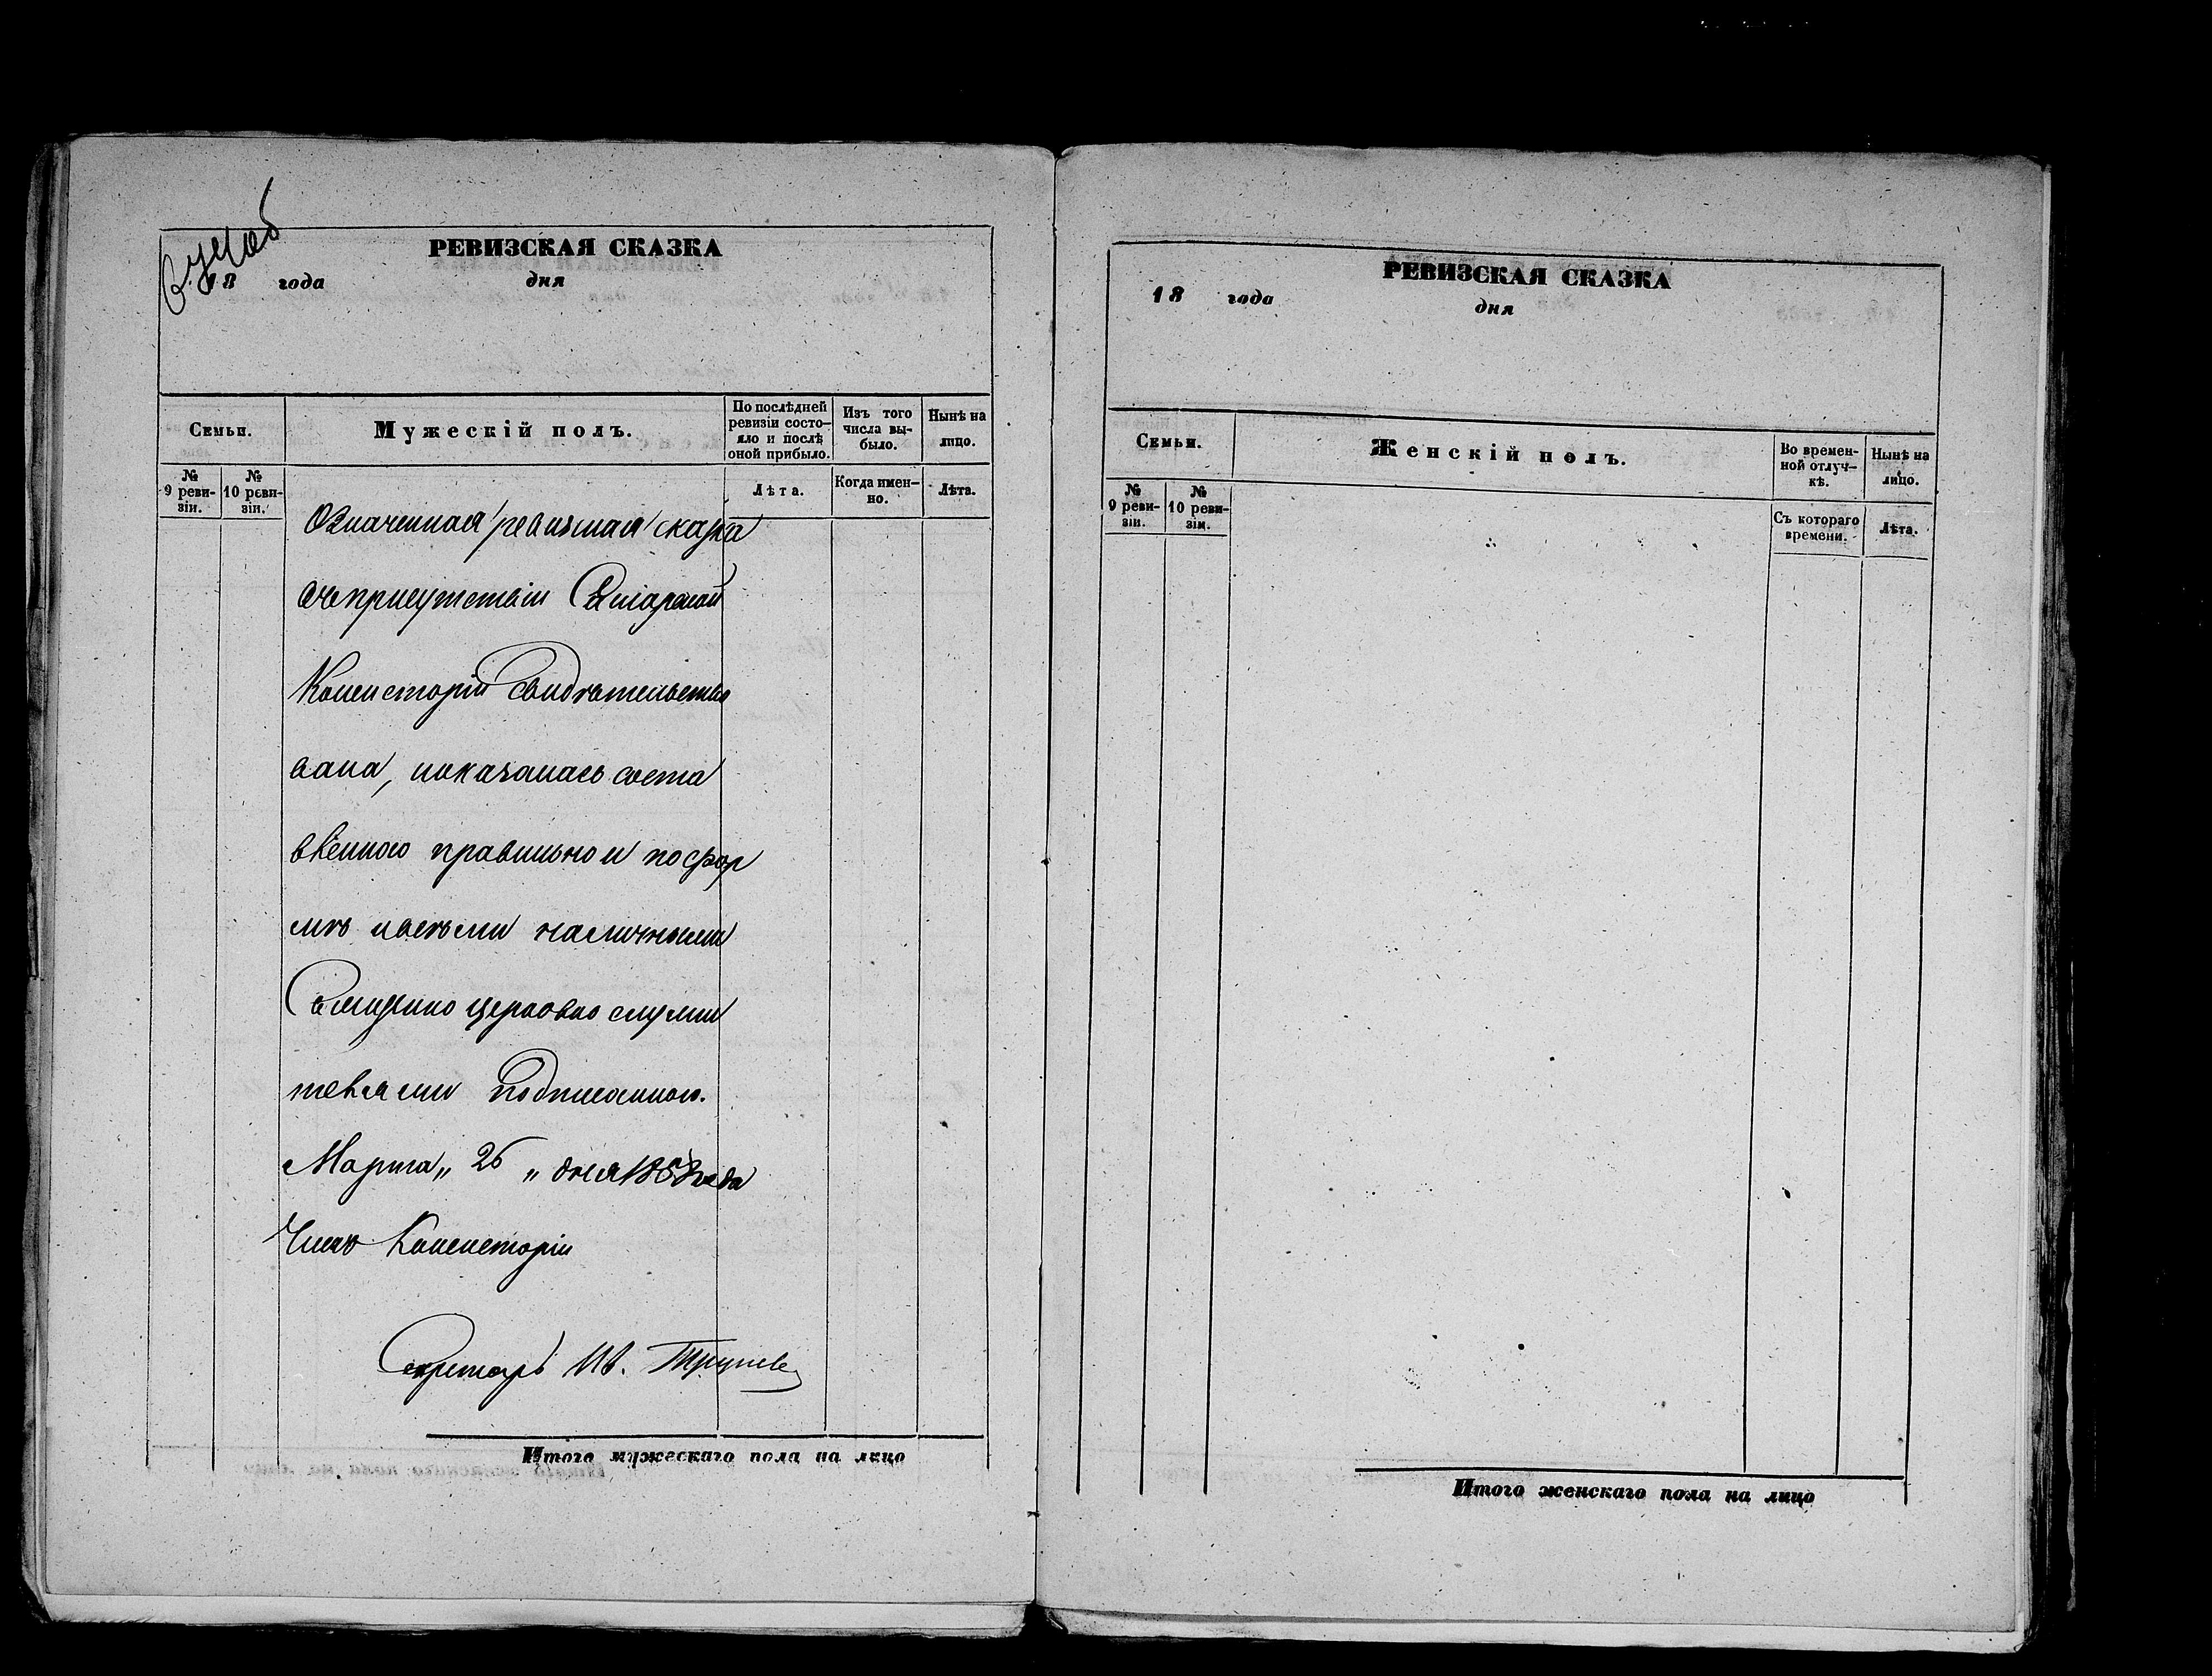 РЕВИЗСКАЯ СКАЗКА
18 года дня
Семьи.
Мужескій полъ.
По послѣдней ревизіи состо-
яло и послѣ оной прибыло.
Изъ того числа вы-
было.
Нынѣ на лицо.
№ 9 реви-
зіи.
№ 10 реви-
зіи.
Лѣта.
Когда имен-
но.
Лѣта.
Означенная ревизская сказка
въ присутствіи
Консисторіи Свидѣтельство
вана, показалась соста
вленною правильно и по фор
мѣ и всѣми наличными
Священно церковно служи
телями подписанною.
Марта „ 26 „ дня 1858 года
Консисторіи
Секретарь Ив.
Итого мужескаго пола на лицо
РЕВИЗСКАЯ СКАЗКА
18 года дня
Семьи.
Женскій полъ.
Во времен-
ной отлуч-
кѣ.
Нынѣ на лицо.
№ 9 реви-
зіи.
№ 10 реви-
зіи.
Съ котораго времени.
Лѣта.
Итого женскаго пола на лицо